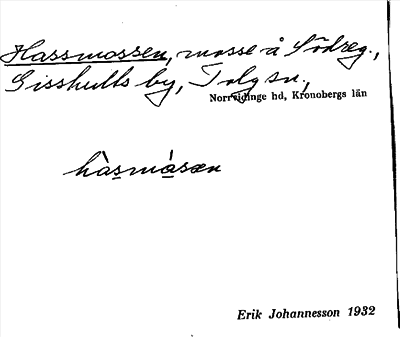 Hassmossen, mosse å Södreg.,
Gisshults by, Tolg sn.,
Norrvidinge hd, Kronobergs län
hàsmásæn
Erik Johannesson 1932